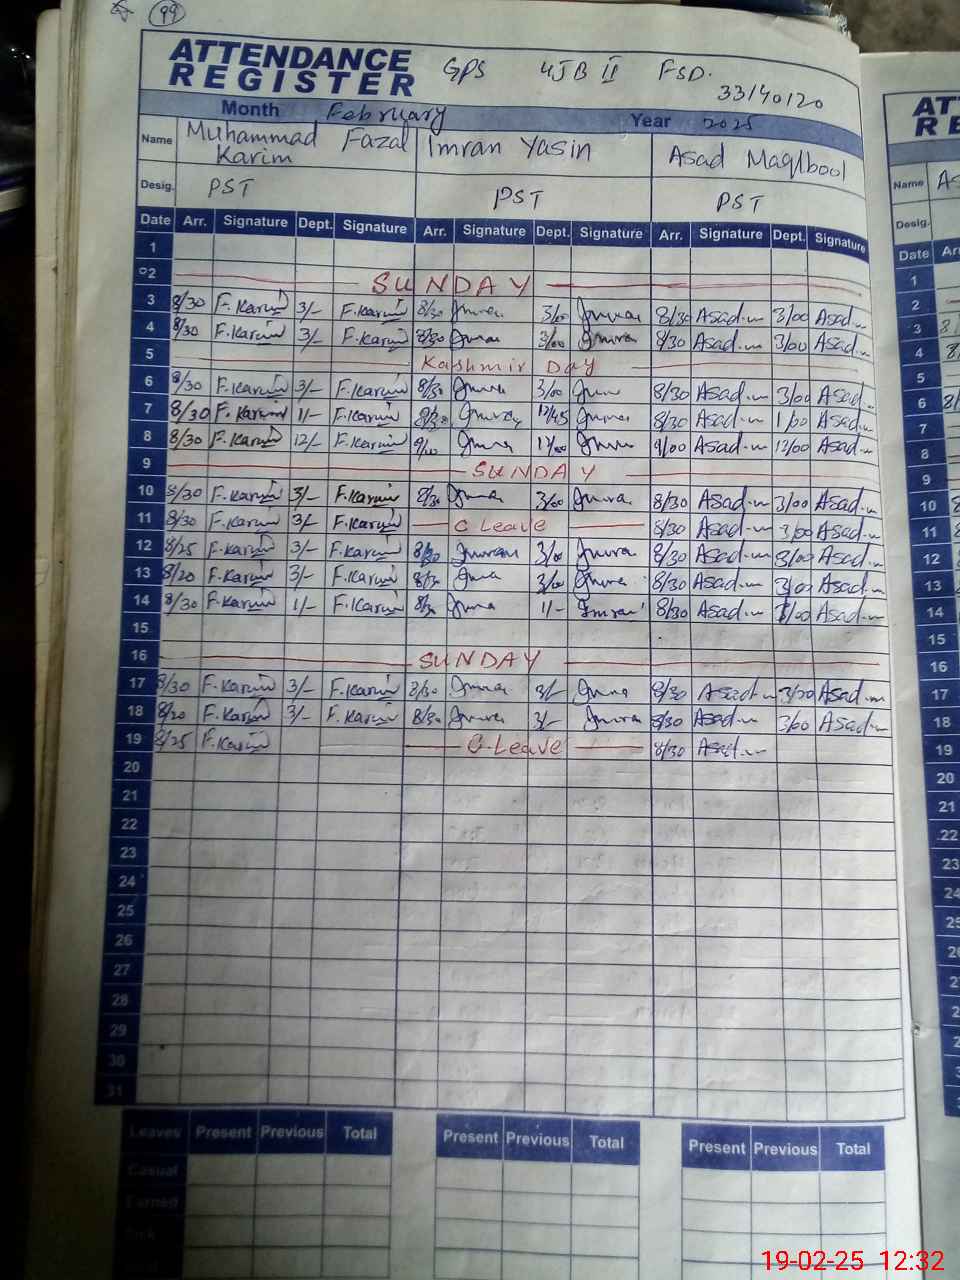 99
ATTENDANCE REGISTER GPS 4JB II FSD.
33140120
Month February Year 2025
Name Muhammad Fazal Karim Imran Yasin Asad Maqlbool
Desig. PST PST PST
Date Arr. Signature Dept. Signature Arr. Signature Dept. Signature Arr. Signature Dept. Signature
1
02 SUNDAY
3 8/30 F.Karim 3/- F.Karim 8/30 Imran 3/00 Imran 8/30 Asad.m 3/00 Asad.m
4 8/30 F.Karim 3/- F.Karim 8/30 Imran 3/00 Imran 8/30 Asad.m 3/00 Asad.m
5 Kashmir Day
6 8/30 F.Karim 3/- F.Karim 8/30 Imran 3/00 Imran 8/30 Asad.m 3/00 Asad.m
7 8/30 F.Karim 1/- F.Karim 8/30 Imran 12/45 Imran 8/30 Asad.m 1/00 Asad.m
8 8/30 F.Karim 12/- F.Karim 9/00 Imran 12/00 Imran 9/00 Asad.m 12/00 Asad.m
9 SUNDAY
10 8/30 F.Karim 3/- F.Karim 8/30 Imran 3/00 Imran 8/30 Asad.m 3/00 Asad.m
11 8/30 F.Karim 3/- F.Karim C Leave 8/30 Asad.m 3/00 Asad.m
12 8/25 F.Karim 3/- F.Karim 8/30 Imran 3/00 Imran 8/30 Asad.m 3/00 Asad.m
13 8/20 F.Karim 3/- F.Karim 8/30 Imran 3/00 Imran 8/30 Asad.m 3/00 Asad.m
14 8/30 F.Karim 1/- F.Karim 8/30 Imran 1/- Imran 8/30 Asad.m 1/00 Asad.m
15
16 SUNDAY
17 8/30 F.Karim 3/- F.Karim 8/30 Imran 3/- Imran 8/30 Asad.m 3/00 Asad.m
18 8/20 F.Karim 3/- F.Karim 8/30 Imran 3/- Imran 8/30 Asad.m 3/00 Asad.m
19 8/25 F.Karim C.Leave 8/30 Asad.m
20
21
22
23
24
25
26
27
28
29
30
31
Leaves Present Previous Total Present Previous Total Present Previous Total
Casual
Earned
Sick
AT
RE
Name As
Desig.
Date Arr
1
2
3 8
4 8
5
6 8/
7
8
9
10 8
11 8
12
13
14
15
16
17
18
19
20
21
22
23
24
19-02-25 12:32